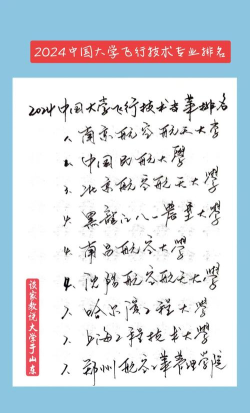 2024中国大学飞行技术专业排名
2024中国大学飞行技术专业排名
1. 南京航空航天大学
2. 中国民航大學
3. 北京航空航天大學
4. 黑龍江八一農垦大學
4. 南昌航空大學
4. 沈陽航空航天大學
7. 哈尔滨工程大學
7. 上海工程技术大學
7. 郑州航空工業管理学院
谈家教说大学于山东